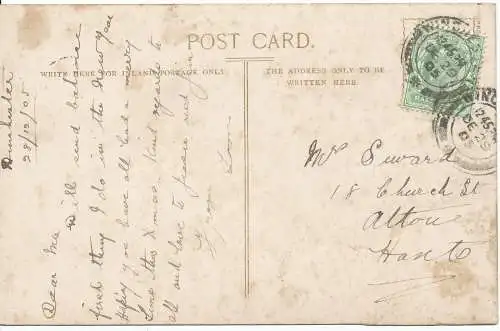 POST CARD.
WRITE HERE FOR INLAND POSTAGE ONLY.
THE ADDRESS ONLY TO BE
WRITTEN HERE.
28/12/05
Dear Ma Will send balance
first thing I do in the New Year
Hope you have all had a merry
time this Xmas. Kind regards to
all and love to Jessie and
from Tom
Mrs Seward
18 Church St
Alton
Hants
1245
DE 29
05